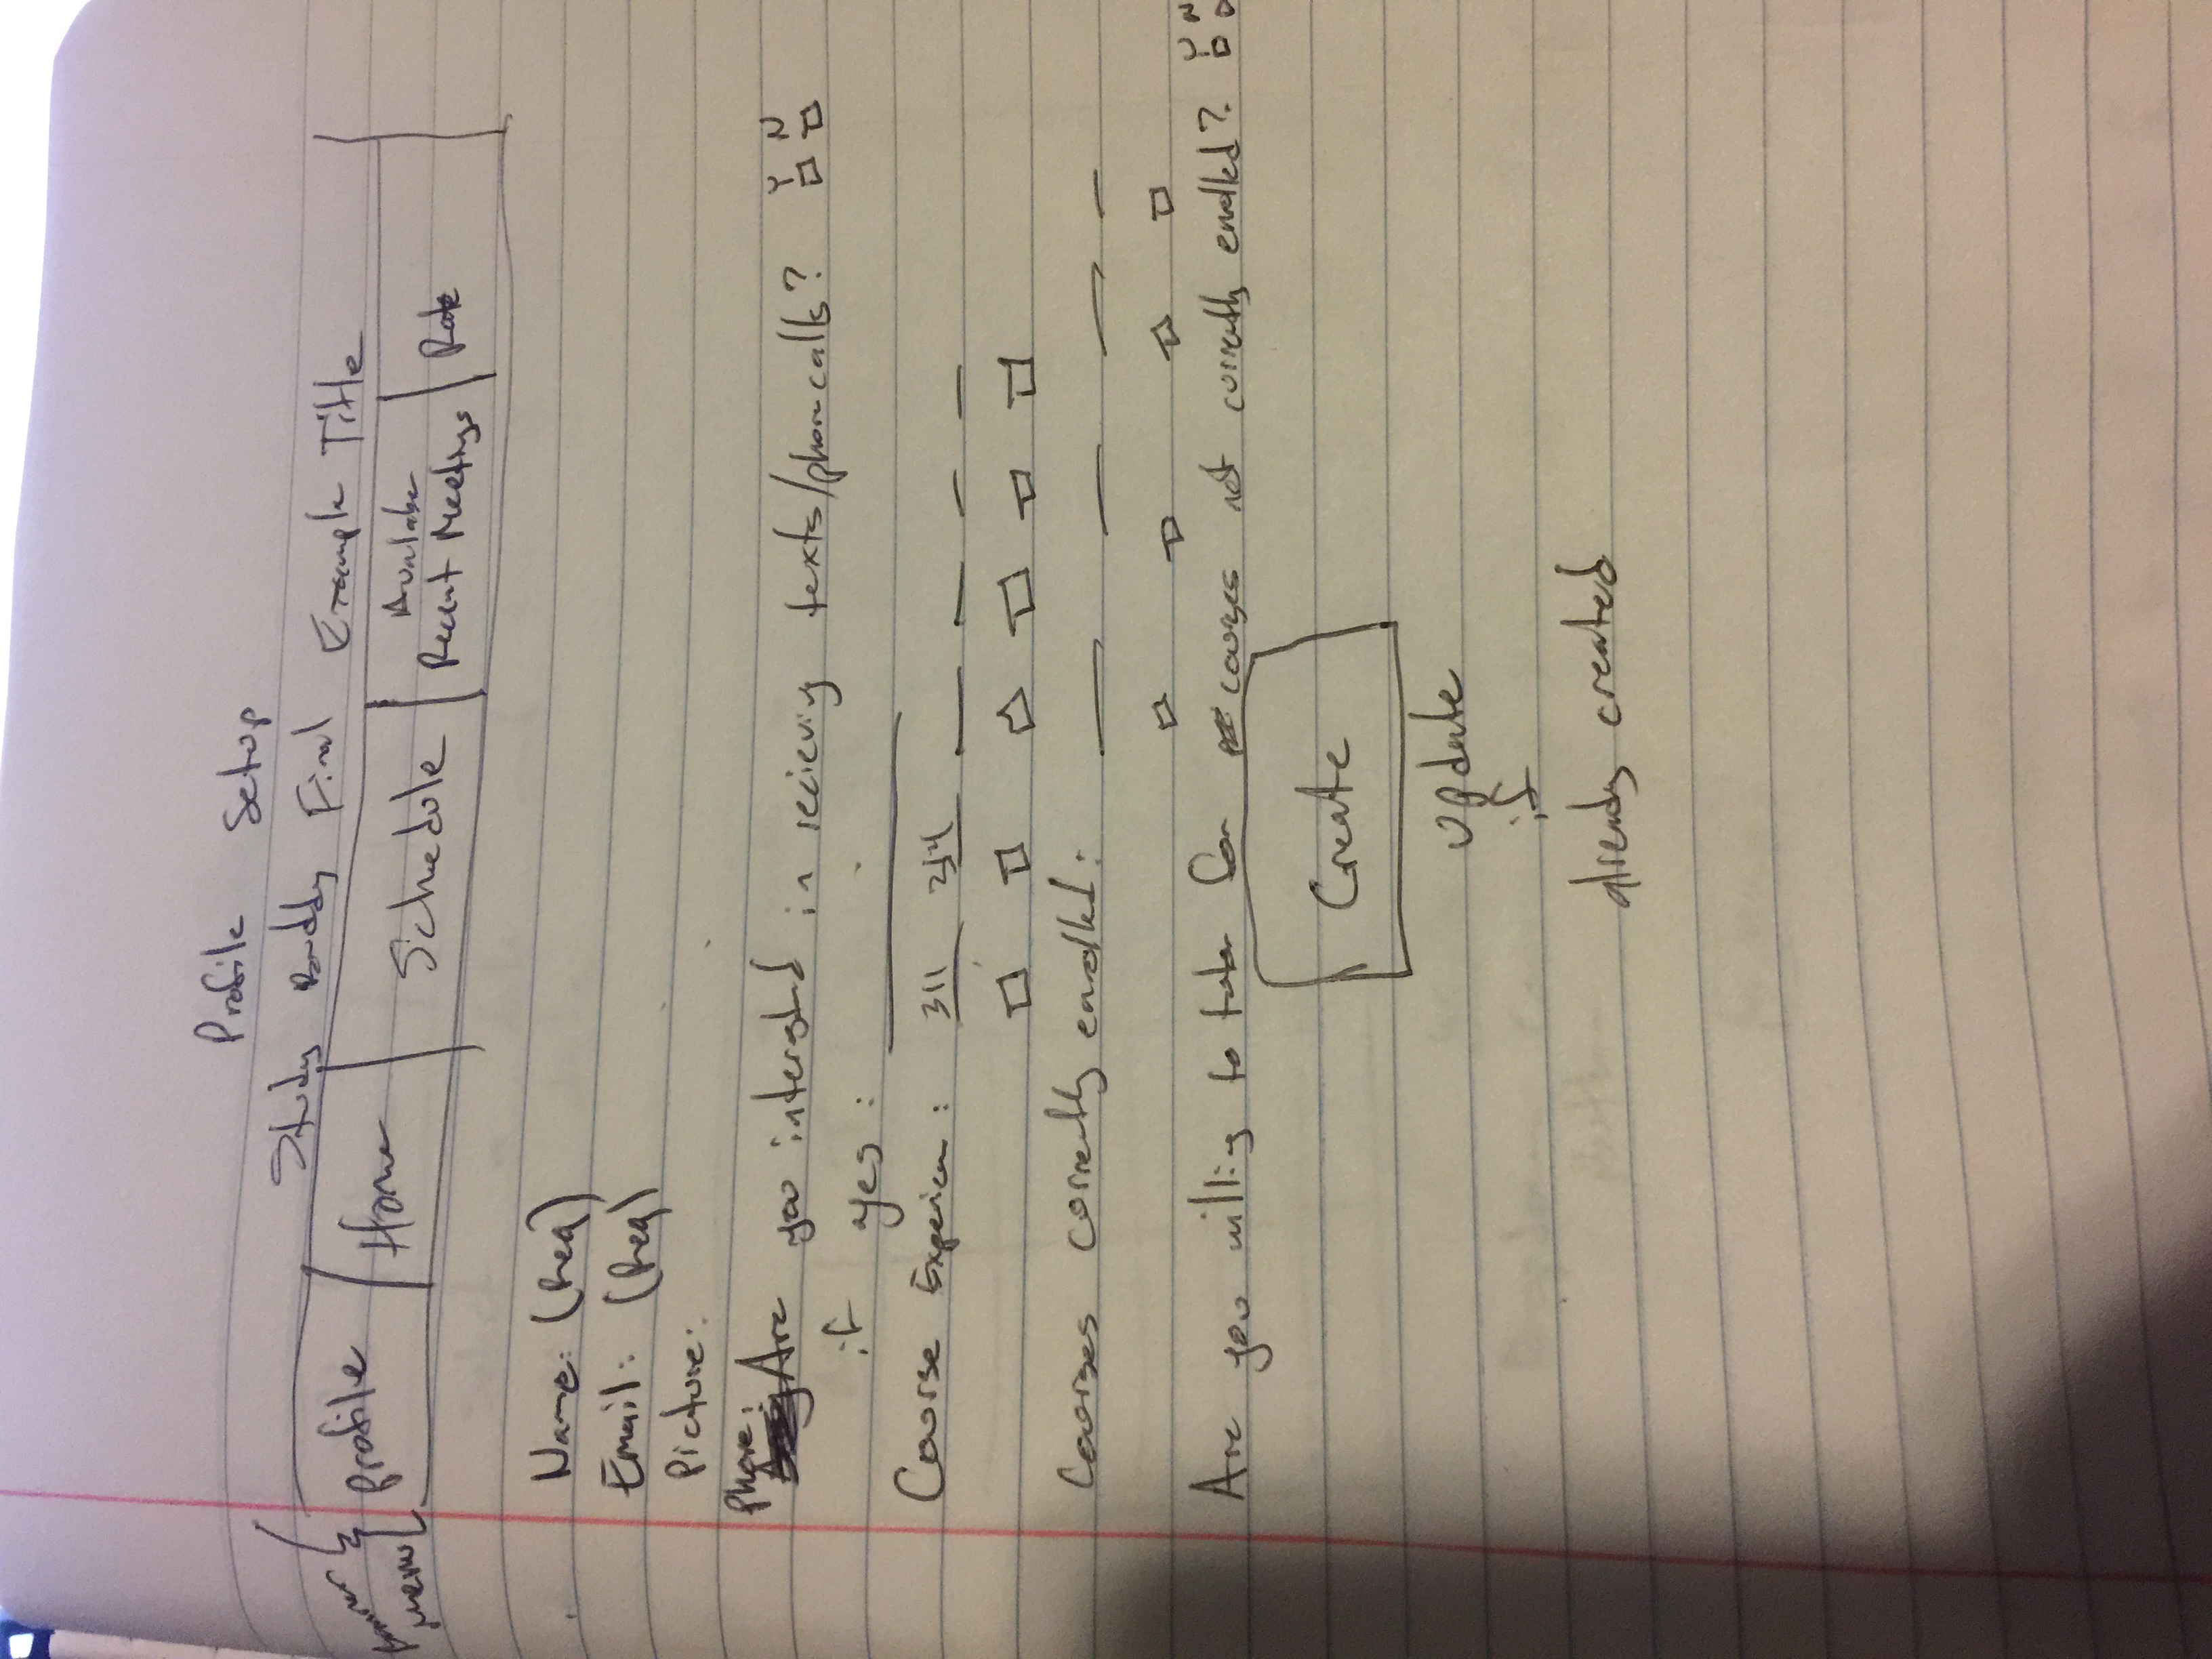 Profile Setup
Study Buddy Final Example Title
Banner
Menu
Profile
Home
Schedule
Recent Meetings
Rate
Name: (Req)
Email: (Req)
Picture:
Phone:
Are you interested in recieving texts/phonecalls? Y N
if yes:
Course Experien: 311 214
Courses currently enrolled:
Are you willing to tutor for courses not currently enrolled? Y N
Create
update
if
already created